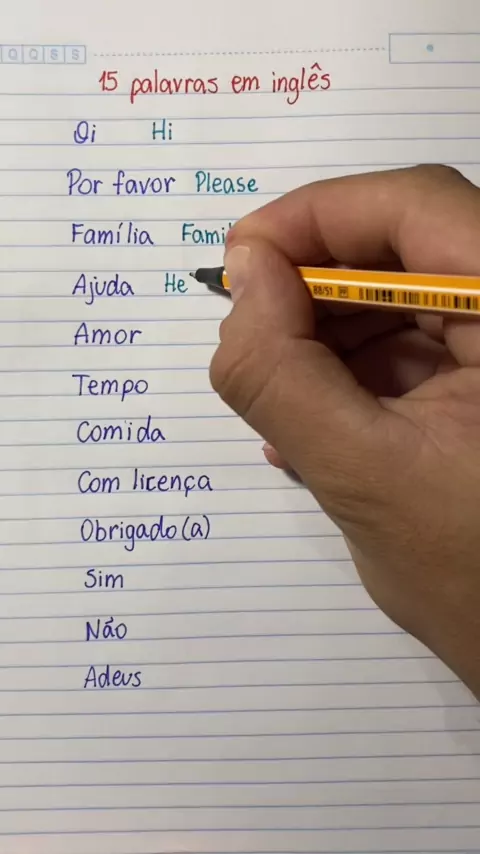 Q Q S S
15 palavras em inglês
Oi Hi
Por favor Please
Família
Ajuda He
88/51
Amor
Tempo
Comida
Com licença
Obrigado(a)
Sim
Não
Adeus